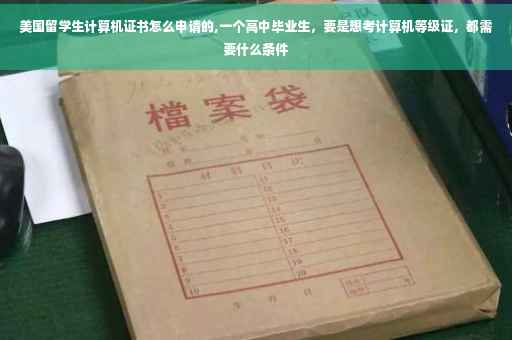 美国留学生计算机证书怎么申请的,一个高中毕业生，要是想考计算机等级证，都需
要什么条件
檔案袋
材料目次
1 11
2 12
3 13
4 14
5 15
6 16
7 17
8 18
9 19
10 20
年 月 日